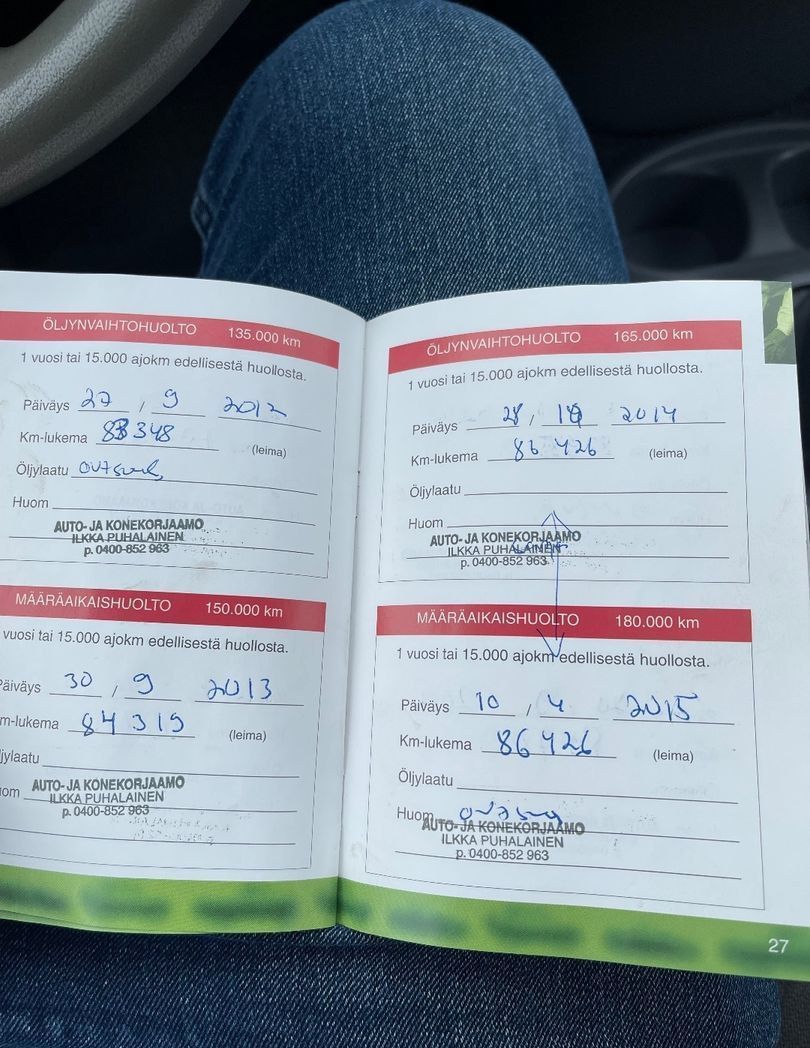 ÖLJYNVAIHTOHUOLTO 135.000 km
1 vuosi tai 15.000 ajokm edellisestä huollosta.
Päiväys 27 / 9 2012
Km-lukema 83 348
(leima)
Öljylaatu
Huom
AUTO- JA KONEKORJAAMO
ILKKA PUHALAINEN
p. 0400-852 963
MÄÄRÄAIKAISHUOLTO 150.000 km
vuosi tai 15.000 ajokm edellisestä huollosta.
Päiväys 30 / 9 2013
m-lukema 84 319
(leima)
jylaatu
om
AUTO- JA KONEKORJAAMO
ILKKA PUHALAINEN
p. 0400-852 963
ÖLJYNVAIHTOHUOLTO 165.000 km
1 vuosi tai 15.000 ajokm edellisestä huollosta.
Päiväys 28 / 2014
Km-lukema 86 426
(leima)
Öljylaatu
Huom
AUTO- JA KONEKORJAAMO
ILKKA PUHALAINEN
p. 0400-852 963
MÄÄRÄAIKAISHUOLTO 180.000 km
1 vuosi tai 15.000 ajokm edellisestä huollosta.
Päiväys 10 / 4 2015
Km-lukema 86 426
(leima)
Öljylaatu
Huom
AUTO- JA KONEKORJAAMO
ILKKA PUHALAINEN
p. 0400-852 963
27